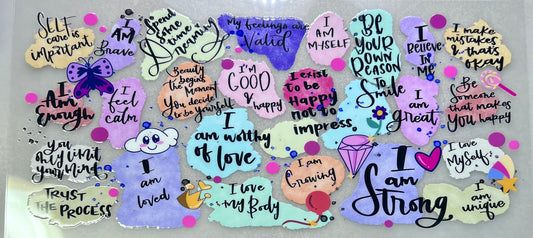 SELF
care is
important
I
AM
Brave
Spend
some
time
Dreaming
My feelings are
Valid
I
AM
MYSELF
BE
YOUR
OWN
REASON
To
Smile
I
Believe
IN
ME
I
make
mistakes
& thats
okay
I
Am
Enough
I
feel
calm
Beauty
begins the
Moment
You decide
to be yourself
I'm
GOOD
&
happy
I exist
to be
Happy
not to
impress
I
am
great
Be
Someone
that makes
You happy
You
only limit
your Mind
I
am
loved
I
am worthy
of love
I am
Growing
I
am
Strong
I
love
Myself
TRUST
THE PROCESS
I love
my Body
I
am
unique